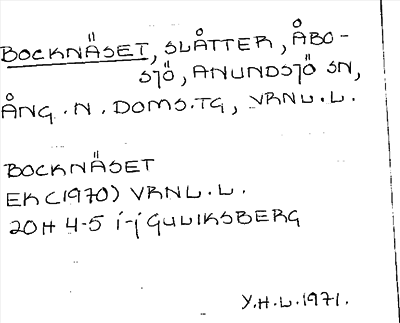 BOCKNÄSET, SLÅTTER, ÅBO-
SJÖ, ANUNDSJÖ SN,
ÅNG. N. DOMS.TG, VRNL.L.
BOCKNÄSET
EK (1970) VRNL.L.
20H 4-5 i-j GULIKSBERG
Y.H.L.1971.